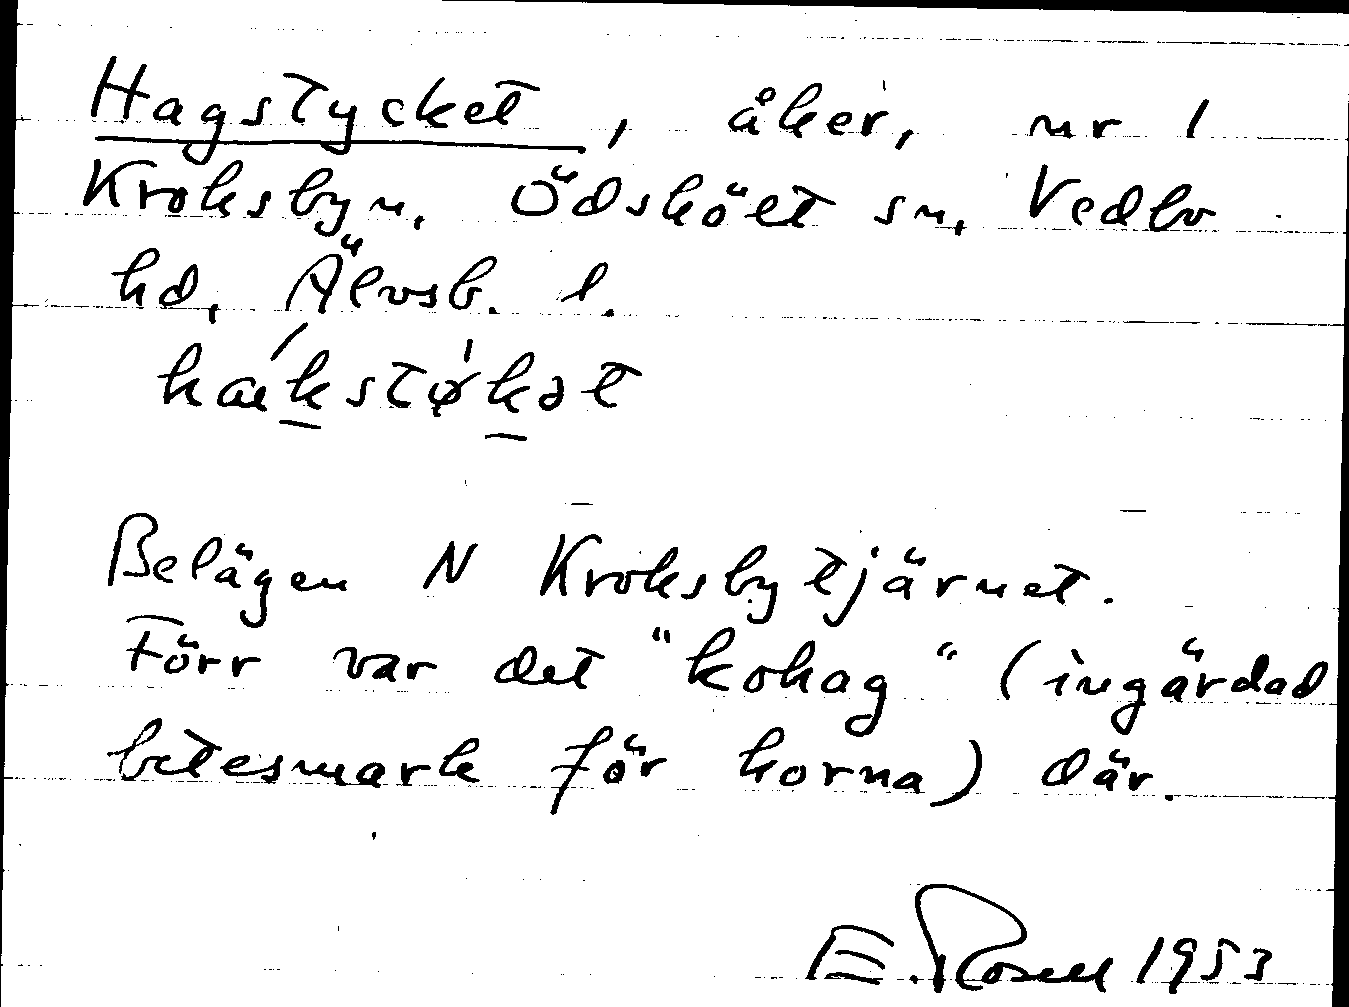 Hagstycket, åker, nr 1
Kroksbyn, Ödskölt sn, Vedbo
hd, Älvsb. l.
Belägen N Kroksbytjärnet.
Förr var det "kohag" (ingärdad
betesmark för korna) där.
E. Rosell 1953